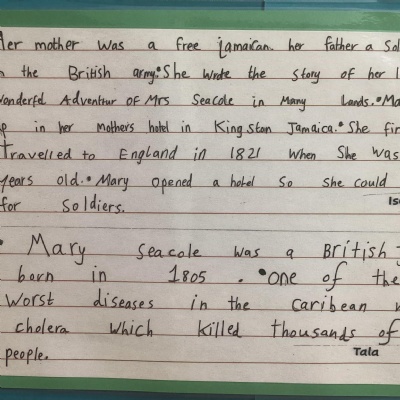 Her mother was a free jamaican. her father a Sol
the British army. She wrote the story of her l
Wonderful Adventur of Mrs Seacole in Many Lands. Ma
in her mothers hotel in Kingston Jamaica. She fir
travelled to England in 1821 when She was
years old. Mary opened a hotel so she could
for Soldiers.
Mary Seacole was a British J
born in 1805. One of the
worst diseases in the caribean w
cholera which killed thousands of
people.
Tala